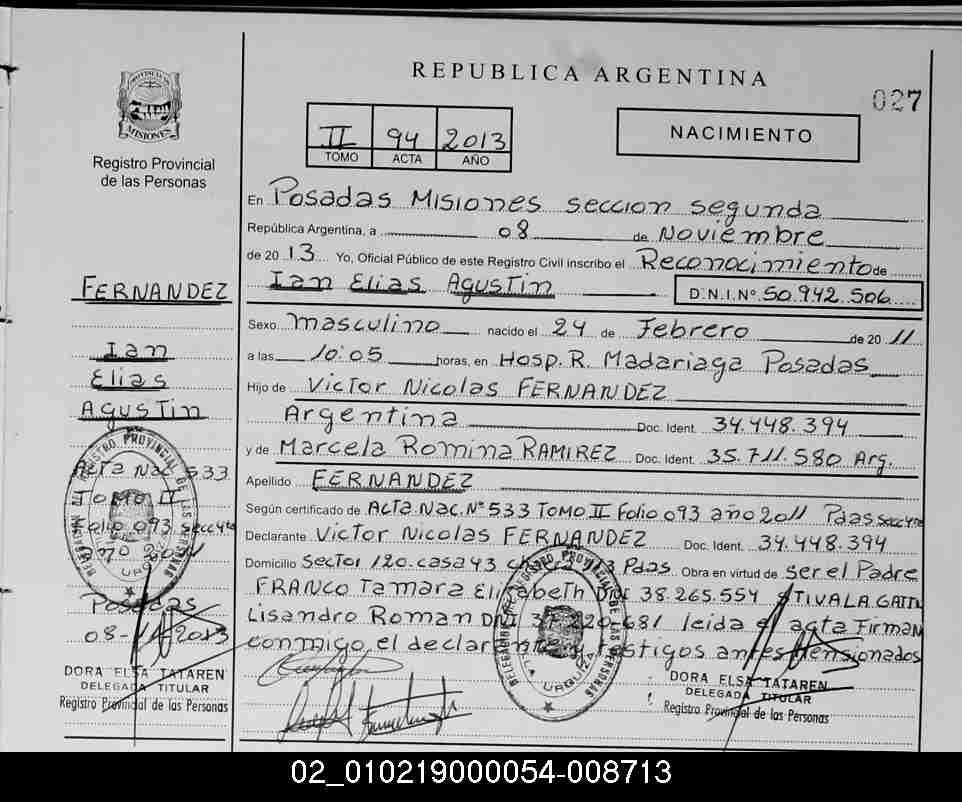 REPUBLICA ARGENTINA
027
PROVINCIA DE MISIONES
Registro Provincial
de las Personas
II 94 2013
TOMO ACTA AÑO
NACIMIENTO
En Posadas Misiones seccion segunda
República Argentina, a 08 de Noviembre
de 2013 Yo, Oficial Público de este Registro Civil inscribo el Reconocimiento de
Ian Elias Agustin D.N.I.Nº 50.942.506
Sexo masculino nacido el 24 de Febrero de 2011
a las 10:05 horas, en Hosp. R. Madariaga Posadas
Hijo de Victor Nicolas FERNANDEZ
Argentina Doc. Ident. 34.448.394
y de Marcela Romina RAMIREZ Doc. Ident. 35.711.580 Arg.
Apellido FERNANDEZ
Según certificado de Acta Nac. Nº 533 Tomo II Folio 093 año 2011 Pdas secc 4ta
Declarante Victor Nicolas FERNANDEZ Doc. Ident. 34.448.394
Domicilio Sector 120. casa 43 Pdas. Obra en virtud de ser el Padre
FRANCO Tamara Elisabeth DNI 38.265.554 STIVALA GATTI
Lisandro Roman DNI leida el acta Firman
conmigo el declarante y testigos antes mensionados
DORA ELSA TATAREN
DELEGADA TITULAR
Registro Provincial de las Personas
FERNANDEZ
Ian
Elias
Agustin
Acta Nac 533
Tomo II
Folio 093 secc 4ta
Año 2011
Posadas
08-11-2013
DORA ELSA TATAREN
DELEGADA TITULAR
Registro Provincial de las Personas
DELEGACION DEL REGISTRO PROVINCIAL DE LAS PERSONAS
VILLA URQUIZA
02_010219000054-008713